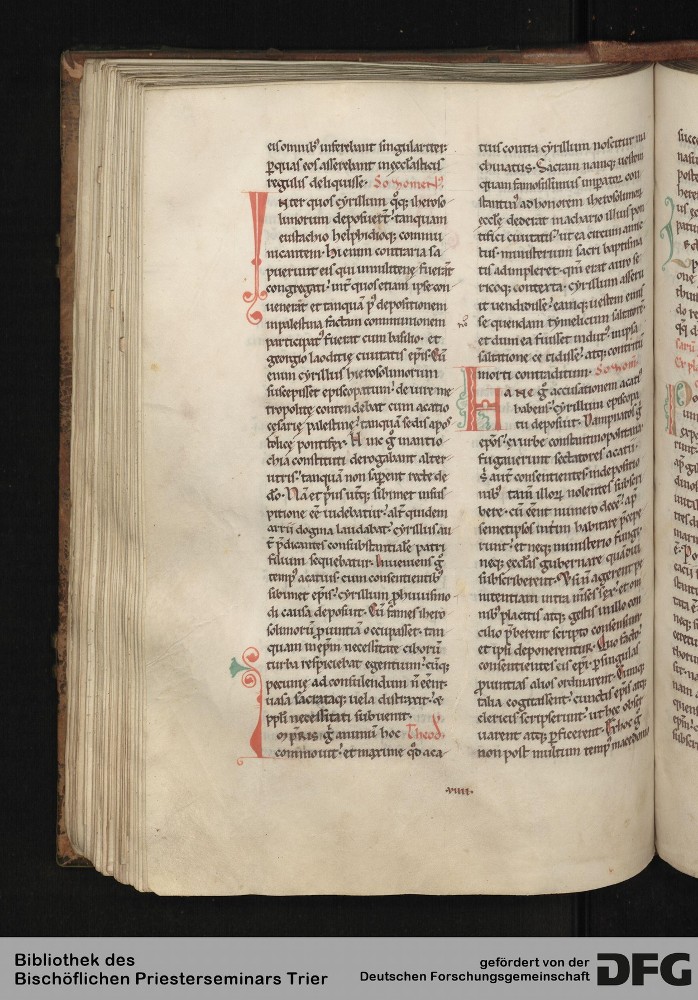 eis omnibꝰ inferebant singulariter·
ꝑ quas eos asserebant in ęcclesiasticis
regulis deliquisse. Sozomenꝰ.
Inter quos cyrillum qq; iheroso
limorum deposuer̄t· tanquam
eustachio helphidioq; commu
nicantem. hi enim contraria sa
puerunt eis qui in militene fuerāt
congregati· int̄ quos etiam ipse con
uenerat et tanquā p̱ᵗ depositionem
in palestina factam communionem
participatꝰ fuerat cum basilio· et
georgio laoditię ciuitatis ep̄is. Cū
enim cyrillus hierosolimorum
suscepisset episcopatum· de iure me
tropolitę contendebat cum acatio
cęsarię palestinę· tanquam sedis apos
tolicę pontifex. Hinc g̊ in antio
chia constituti derogabant alter
utris· tanquā non saperent recte de
dō. Nā et prius utq; sibimet in sus
pitione eē uidebatur· alt̄ quidem
arrii dogma laudabat· cyrillus au
t̄ p̄dicantes consubstantialē patri
filium sequebatur. Inueniens g̊
tempꝰ acatius· cum consentientibꝰ
sibimet ep̄is· cyrillum p̄huiusmo
di causa deposuit. Cū fames ihero
solimorū ꝓuintiā occupasset· tan
quam in ep̄m necessitate ciborū
turba respiciebat egentium· cūq;
pecunię ad consulendum n̄ eēnt·
uasa sacrataq; uela distraxit· &
ppl̄i necessitati subuenit.
Imp̄ris g̊ animū hoc Theod̄.
commouit· et maxime qd̄ aca
tius contra cyrillum noscitur ma
chinatus. Sacram namq; uestem
quam famosissimus imperator con
stantinꝰ ad honorem iherosolimorū
ęcclę dederat machario illius pon
tifici ciuitatis· ut ea circumamic
tus· ministerium sacri baptisma
tis adimpleret· qm̄ erat auro se
ricoq; contexta· cyrillum asseru
it uendidisse· eamq; uestem emis
se quendam tymelicum saltatorē·
et dum ea fuisset indutꝰ· in ipsa
saltatione cecidisse· atq; contritū
morti contraditum. Sozom̄.
Hanc g̊ accusationem acatiꝰ
habens· cyrillum episcopa
tu deposuit. Damnatos g̊
ep̄os· ex urbe constantinopolitana
fugauerunt sectatores acatii·
S; aut̄ consentientes in depositio
nibꝰ tam illorū nolentes subscri
bere· cū eēnt numero decē· ap̄
semetipsos intim habitare p̄cepe
runt· et neq; ministerio fungi·
neq; ęccłas gubernare quādiu ñ
subscriberent. Qui si n̄ agerent pe
nitentiam intra m̄ses sex· et om
nibꝰ placitis atq; gestis in illo con
cilio p̄berent scripto consensum·
et ipsi deponerentur. Quo facto·
consentientes eis ep̄i· ꝑ singulas
ꝓuintias alios ordinarent. Cumq;
talia cogitassent· cunctis ep̄is atq;
clericis scripserunt· ut hec obser
uarent atq; ꝑficerent. Ex hoc g̊
non post multum tempꝰ macedonio
·viiii·
Bibliothek des
Bischöflichen Priesterseminars Trier
gefördert von der
Deutschen Forschungsgemeinschaft
DFG